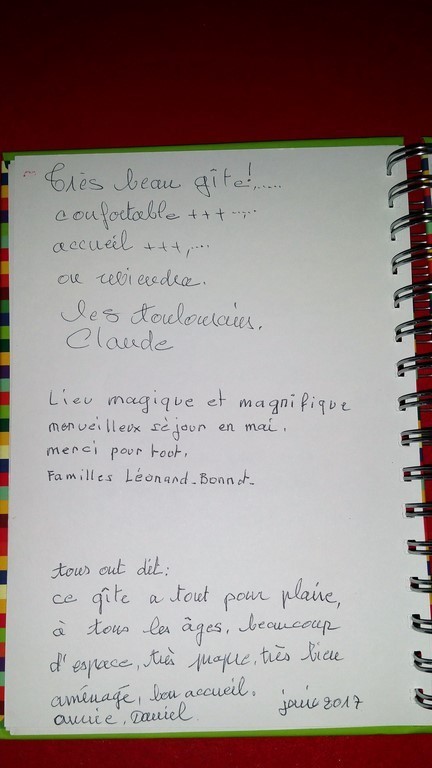 Très beau gîte!.....
confortable +++.....
accueil +++,....
on reviendra.
les toulousains.
Claude
Lieu magique et magnifique
merveilleux séjour en mai.
merci pour tout.
Familles Léonard-Bonnet-
tous ont dit:
ce gîte a tout pour plaire,
à tous les âges, beaucoup
d'espace, très propre, très bien
aménagé, bon accueil.
annie, Daniel. juin 2017